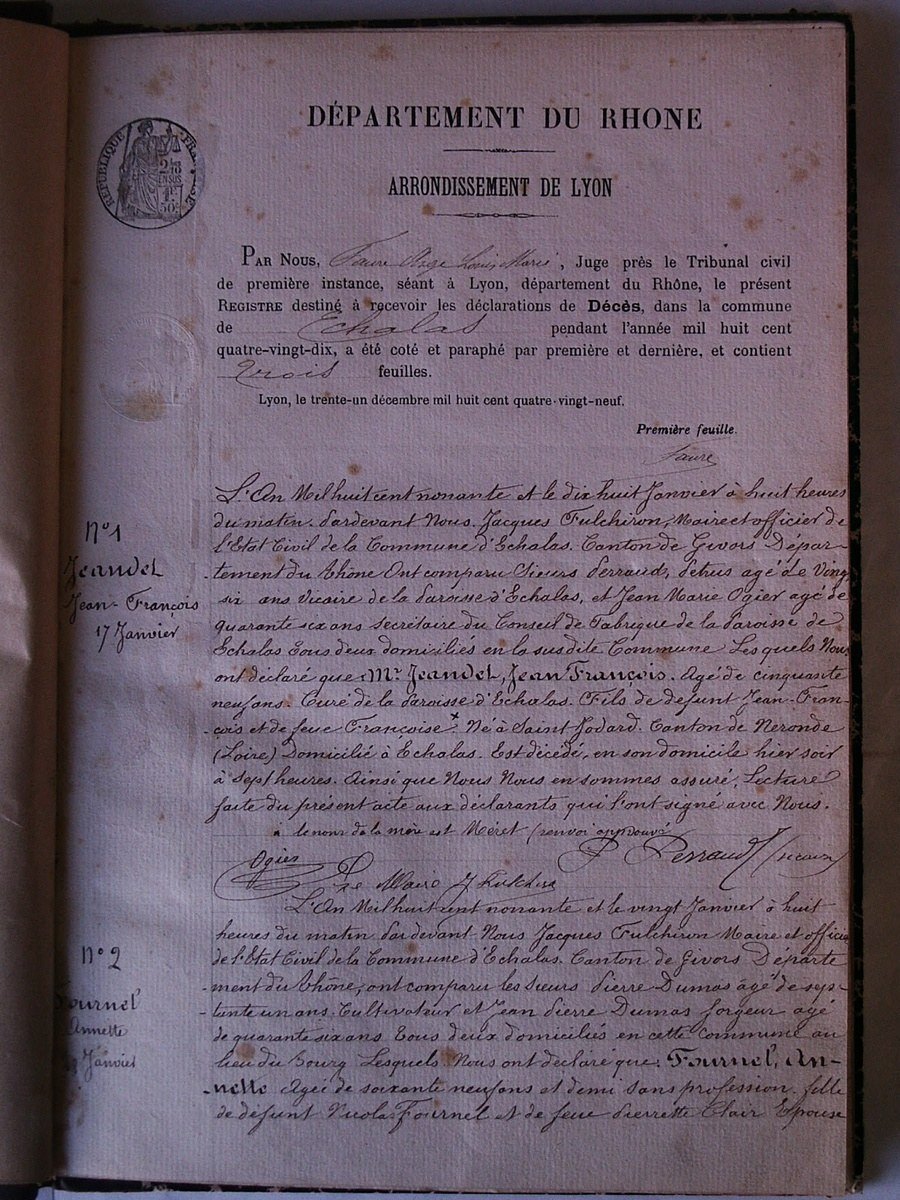 DÉPARTEMENT DU RHONE
ARRONDISSEMENT DE LYON
RÉPUBLIQUE
2/10
EN SUS
1F
50c
PAR NOUS, Faure Ange Louis Marie, Juge près le Tribunal civil
de première instance, séant à Lyon, département du Rhône, le présent
REGISTRE destiné à recevoir les déclarations de Décès, dans la commune
de Echalas pendant l'année mil huit cent
quatre-vingt-dix, a été coté et paraphé par première et dernière, et contient
Trois feuilles.
Lyon, le trente-un décembre mil huit cent quatre-vingt-neuf.
Première feuille.
Faure
N° 1
Jeandet
Jean-François
17 Janvier
L'An Mil huit cent nonante et le dix huit Janvier à huit heures
du matin. Pardevant Nous. Jacques Fulchiron, Maire et officier de
l'Etat Civil de la Commune d'Echalas. Canton de Givors Dépar-
-tement du Rhône Ont comparu Sieurs Perraud, Petrus agé de Vingt
six ans Vicaire de la Paroisse d'Echalas, et Jean Marie Ogier agé de
quarante six ans Secrétaire du Conseil de Fabrique de la Paroisse de
Echalas Tous deux domiciliés en la susdite Commune Les quels Nous
ont déclaré que Mr Jeandet, Jean François. Agé de cinquante
neuf ans. Curé de la Paroisse d'Echalas. Fils de défunt Jean-Fran-
-çois et de feue Françoise x Né à Saint Jodard. Canton de Neronde
(Loire) Domicilié à Echalas. Est décédé, en son domicile hier soir
à sept heures. Ainsi que Nous Nous en sommes assuré. Lecture
faite du présent acte aux déclarants qui l'ont signé avec Nous.
x le nom de la mère est Méret (renvoi approuvé
Ogier P Perraud (vicaire)
Le Maire J Fulchiron
N° 2
Fournel
Annette
Janvier
L'An Mil huit cent nonante et le vingt Janvier à huit
heures du matin Pardevant Nous Jacques Fulchiron Maire et officier
de l'Etat Civil de la Commune d'Echalas. Canton de Givors Départe
-ment du Rhône, ont comparu les Sieurs Pierre Dumas agé de sep-
-tante un ans. Cultivateur et Jean Pierre Dumas forgeur agé
de quarante six ans Tous deux domiciliés en cette commune au
lieu du Bourg Lesquels Nous ont déclaré que Fournel, An-
-nette Agée de soixante neuf ans et demi sans profession. fille
de défunt Nicolas Fournel et de feue Pierrette Clair Epouse